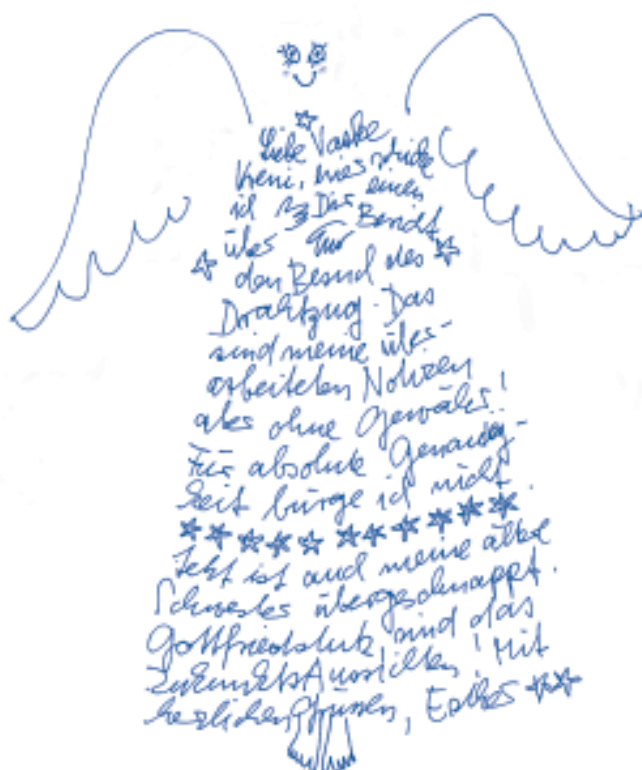 Liebe Vaeke
Vreni, hier schicke
ich Dir einen
über Bericht
den Besuch des
Drahtzug. Das
sind meine über-
arbeiteten Notizen
aber ohne Gewähr!
Für absolute Genauig-
keit bürge ich nicht.
Jetzt ist auch meine ältere
Schwester übergeschnappt.
Gottfriedstutz sind das
Aussichten! Mit
herzlichen Grüssen, Esther